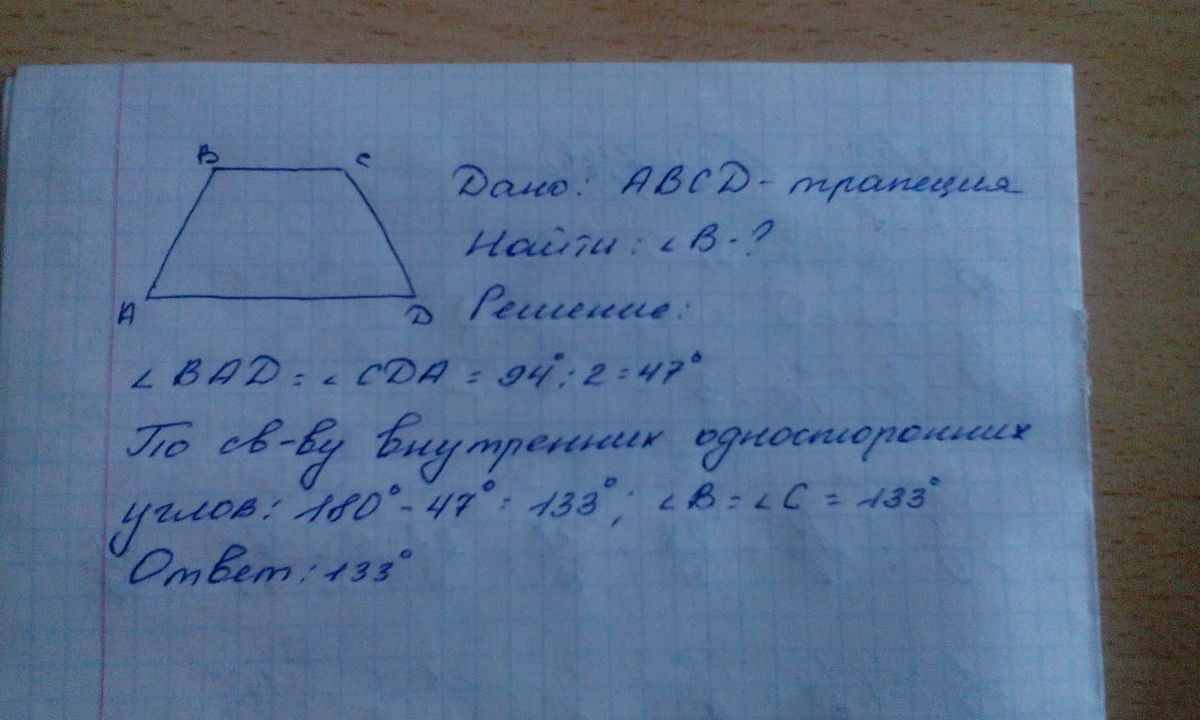 B C
Дано: ABCD - трапеция
Найти: ∠B - ?
A D
Решение:
∠BAD = ∠CDA = 94° : 2 = 47°
По св-ву внутренних односторонних
углов: 180° - 47° = 133°; ∠B = ∠C = 133°
Ответ: 133°